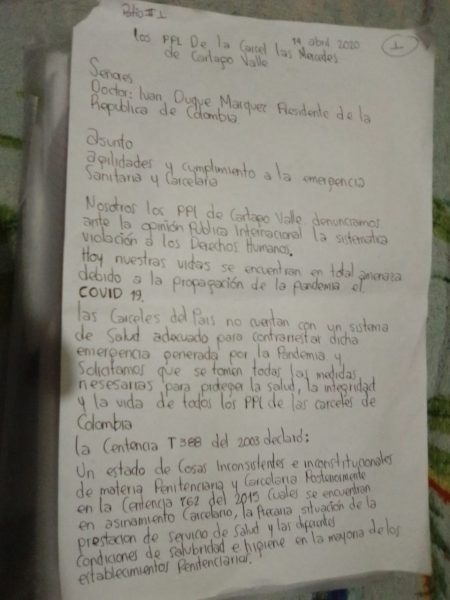 Patio #1
19 abril 2020
1
los PPL De la Carcel las Mercedes
de Cartago Valle
Senores
Doctor: Ivan Duque Marquez Presidente de la
Republica de Colombia
asunto
agilidades y cumplimiento a la emergencia
Sanitaria y Carcelaria
Nosotros los PPL de Cartago Valle denunciamos
ante la opinión Publica Internacional la sistematica
violación a los Derechos Humanos.
Hoy nuestras vidas se encuentran en total amenaza
debido a la propagación de la pandemia el
COVID 19.
las Carceles del Pais no cuentan con un sistema
de Salud adecuado para contrarrestar dicha
emergencia generada por la Pandemia y
Solicitamos que se tomen todas las medidas
nesesarias para proteger la salud, la integridad
y la vida de todos los PPL de las carceles de
Colombia
la Centencia T388 del 2003 declaró:
Un estado de Cosas Inconsistentes e inconstitucionales
de materia Penitenciaria y Carcelaria Posteriormente
en la Centencia T62 del 2015 Cuales se encuentran
en asinamiento Carcelario, la Precaria situación de la
prestacion de servicio de Salud y las dificiles
Condiciones de salubridad e higiene en la mayoria de los
establecimientos Penitenciarios.